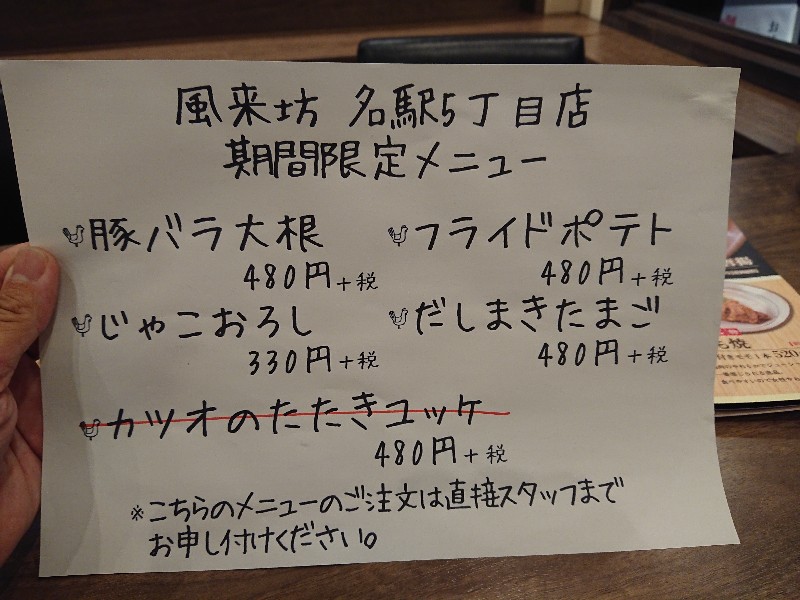 風来坊 名駅5丁目店
期間限定メニュー
豚バラ大根
480円+税
フライドポテト
480円+税
じゃこおろし
330円+税
だしまきたまご
480円+税
カツオのたたきユッケ
480円+税
※こちらのメニューのご注文は直接スタッフまで
お申し付けください。